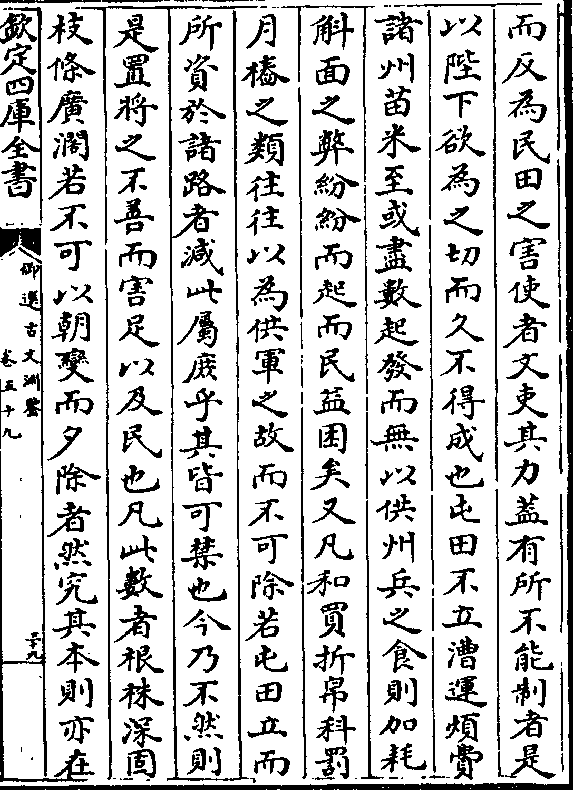 而反為民田之害使者文吏其力蓋有所不能制者是
以陛下欲為之切而久不得成也屯田不立漕運煩費
諸州苗米至或盡數起發而無以供州兵之食則加耗
斛面之弊紛紛而起而民益困矣又凡和買折帛科罰
月樁之類往往以為供軍之故而不可除若屯田立而
所資於諸路者減此屬庶乎其皆可禁也今乃不然則
是置將之不善而害足以及民也凡此數者根株深固
枝條廣濶若不可以朝變而夕除者然究其本則亦在
欽定四庫全書
御選古文淵鑒
卷五十九
三十九